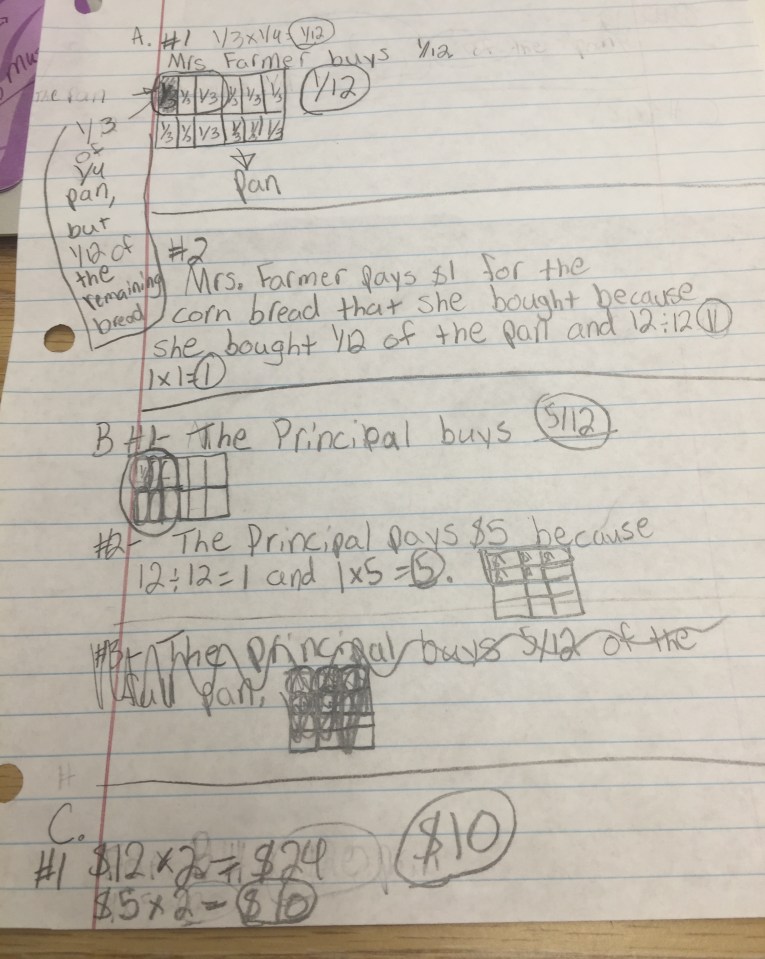 A. #1 1/3x1/4=1/12
Mrs. Farmer buys 1/12
1/3 1/3 1/3 1/3 1/3 1/12
1/3 1/3 1/3 1/3 1/3
Pan
1/3
of
1/4
pan,
but
1/12 of
the
remaining
bread
#2
Mrs. Farmer pays $1 for the
corn bread that she bought because
she bought 1/12 of the pan and 12÷12
1x1=1
B #1- The Principal buys 5/12
#2- The Principal pays $5 because
12÷12=1 and 1x5=5.
The principal buys 5/12 of the
pan.
C.
#1 $12x2=$24 $10
$5x2=$10